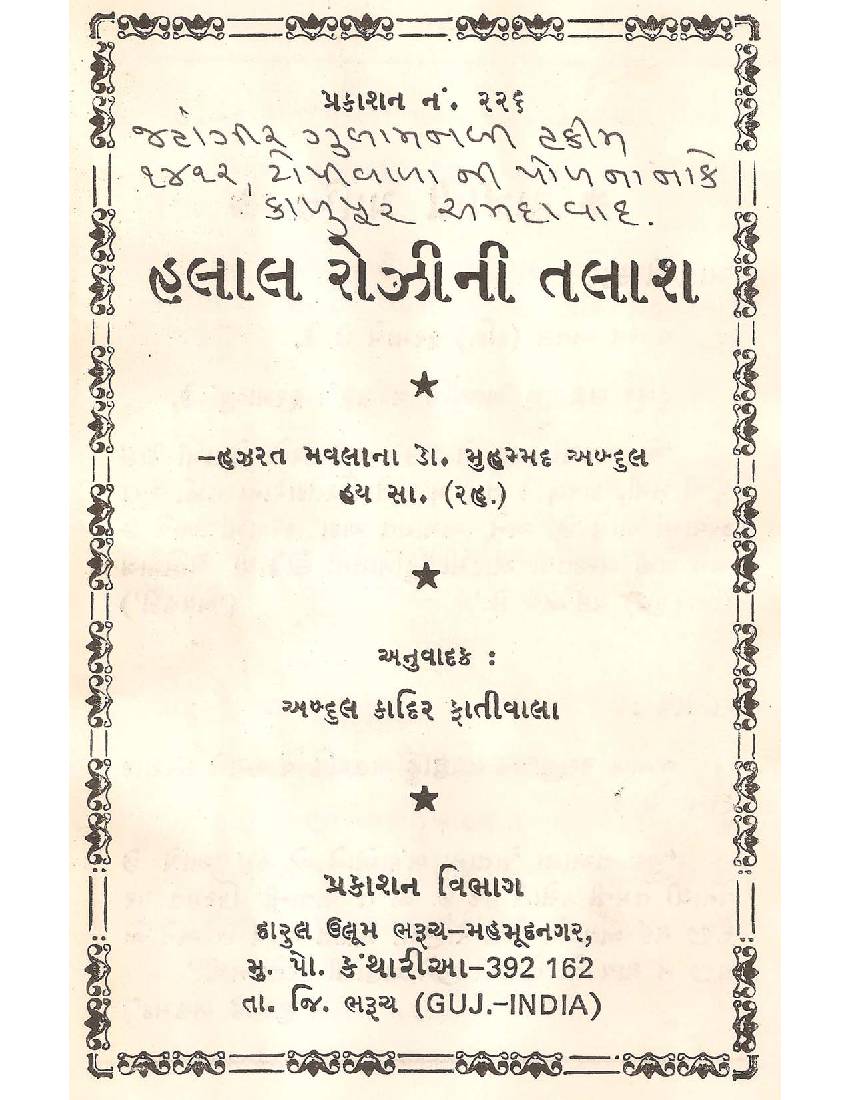 પ્રકાશન નં. ૨૨૬
જહાંગીર ગુલામનબી હકીમ
૧૪૧૨, ટોપીવાળા ની પોળ ના નાકે
કાળુપૂર અમદાવાદ.
હલાલ રોઝીની તલાશ
–હઝરત મવલાના ડો. મુહમ્મદ અબ્દુલ
હય સા. (રહ.)
અનુવાદક :
અબ્દુલ કાદિર ફાતીવાલા
પ્રકાશન વિભાગ
દારુલ ઉલૂમ ભરૂચ–મહમૂદનગર,
મુ. પો. કંથારીઆ–392 162
તા. જિ. ભરૂચ (GUJ.–INDIA)